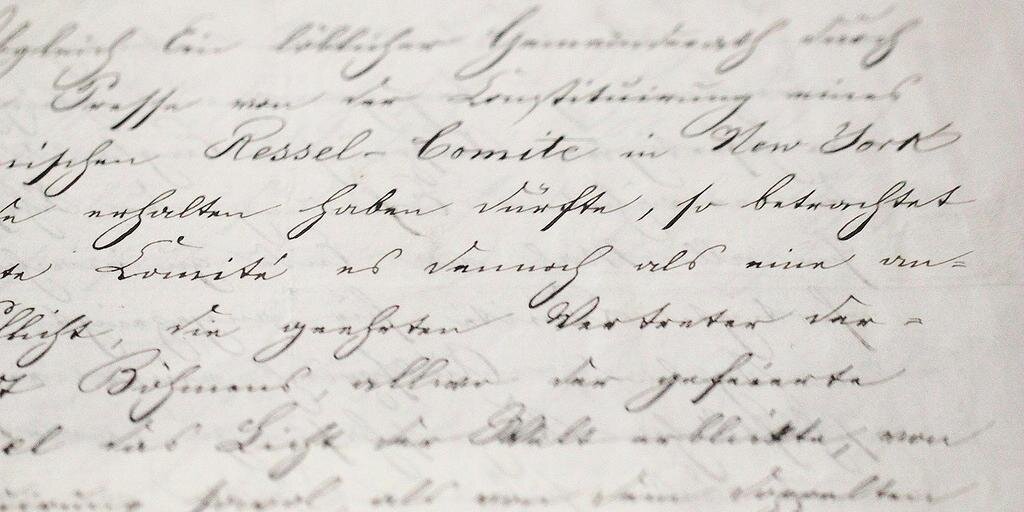 Obgleich Ein löblicher Gemeinderath durch
Presse von der Constituirung eines
nischen Ressel-Comite in New York
erhalten haben dürfte, so betrachtet
te Comité es dennoch als eine an=
flicht, die geehrten Vertreter der=
Böhmens, allwo der gefeierte
el das Licht der Welt erblickte, von
uirung sowol als von dem doppelten